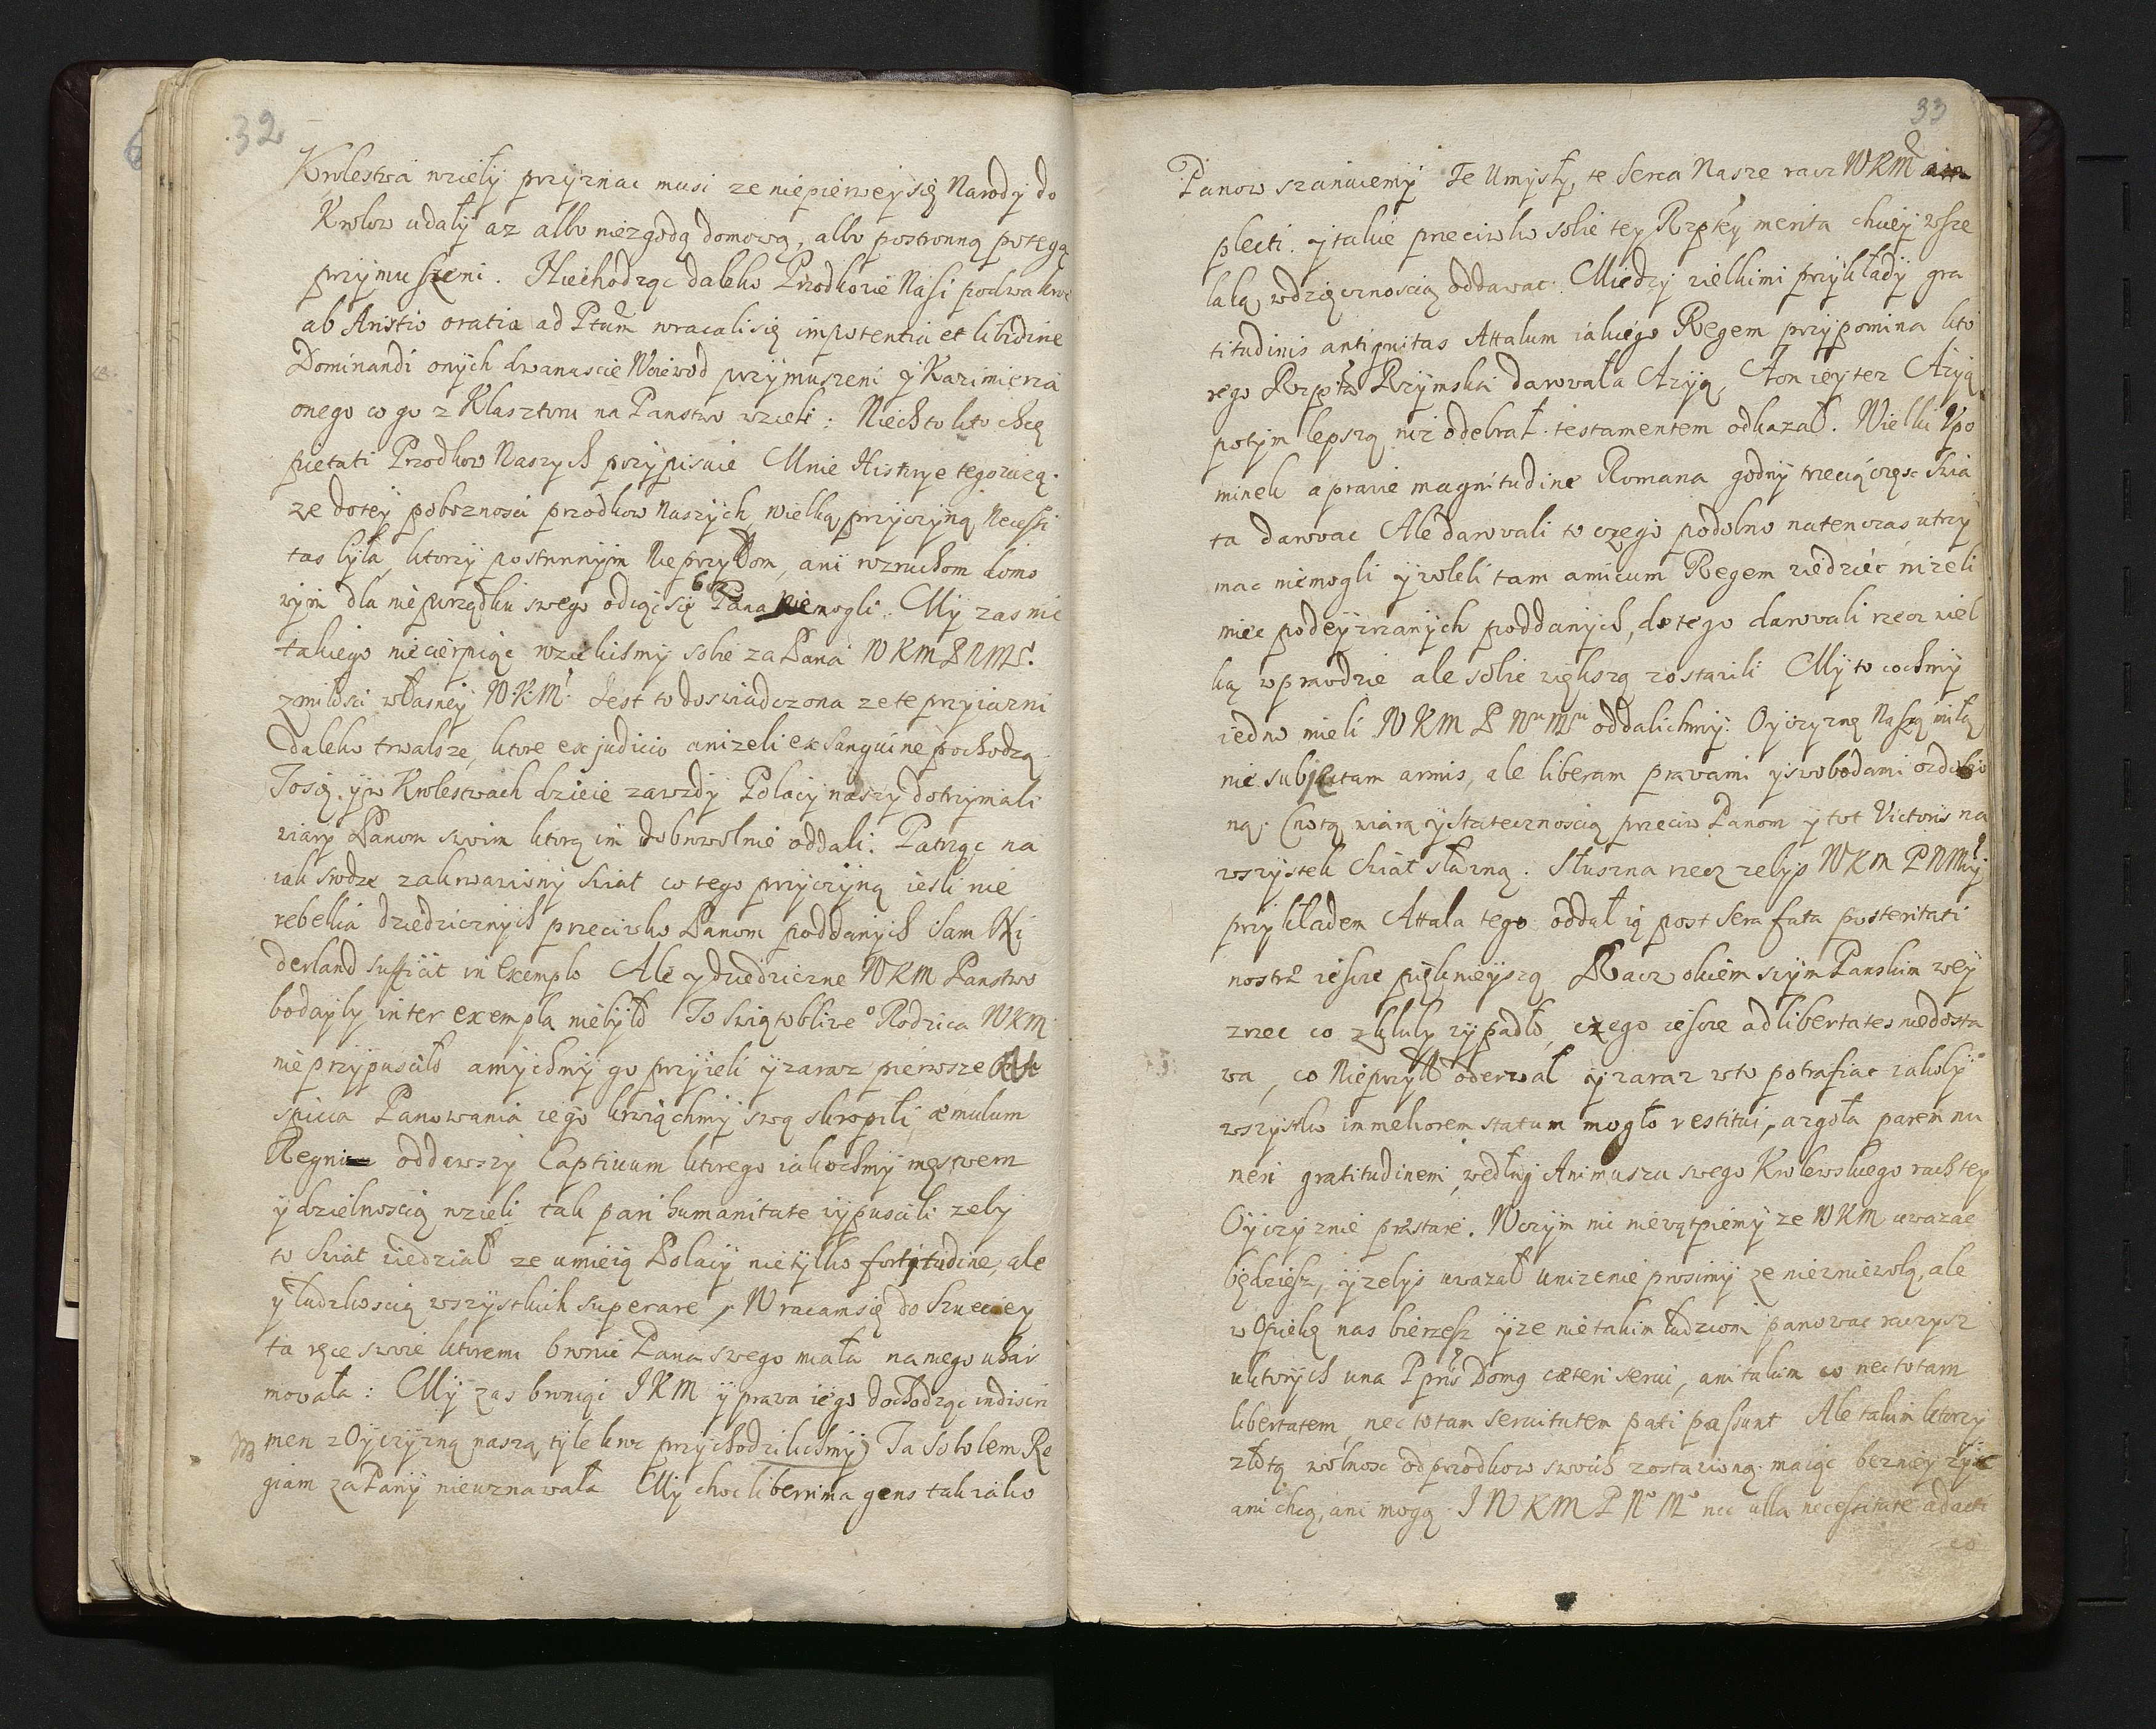 32
Krolestwa wzieły przyznac musi ze niepierwey się Narody do
Krolow udały az albo niezgodą domową, albo postronną potęgą
przymuszeni. Niechodząc daleko Przodkowie Nasi podwa kroc
ab Aristio oratia ad Ptum wracali się impotentia et libidine
Dominandi onych dwanascie Woiewod przymuszeni y Kazimierza
onego co go z Klasztoru na Panstwo wzieli: Niech to kto chce
pietati Przodkow Naszych przypisuie Mnie Historye tego uczą
ze do tey poboznosci przodkow Naszych, wielką przyczyną Necessi
tas była, ktorzy postronnym Nieprzyłłom, ani wzruchom domo
wym dla nieporządku swego odiąć się bez Pana niemogli. My zas nic
takiego niecierpiąc wzieliśmy sobie za Pana W K M P N Mł.
z miłosci własney W.K.M. Jest to doswiadczona ze te przyiazni
daleko trwalsze, ktore ex judicio anizeli ex sanguine pochodzą
To się y w Krolestwach dzieie zawzdy Polacy naszy dotrzymali
wiary Panom swoim ktorą im dobrowolnie oddali. Patrząc na
iak srodze zakrwawiony swiat co tego przyczyną iesli nie
rebellia dziedzicznych przeciwko Panom poddanych sam Ni
derland sufficit in Exemplo Ale y dziedziczne W K M Panstwo
bodayby inter exempla niebyło To swiątobliwe° Rodzica WKM
nieprzypusciło a mychmy go przyieli y zaraz pierwsze Au
spicia Panowania iego krwiąchmy swą skropili, æmulum
Regni oddawszy Captivum ktorego iakochmy męstwem
y dzielnoscią wzieli tak pari humanitate wypuscili zeby
to swiat wiedział ze umieią Polacy nietylko fortitudine, ale
y ludzkoscią wszystkich superare, Wracam się do Szueciey
ta ręce swoie ktoremi bronic Pana swego miała na niego uzbar
mowała: My zas broniąc I K M y prawa iego dochodząc in discri
men z Oyczyzną naszą tyle kroc przychodzilichmy) Ta Sobolem Re
giam za Pany nieuznawała My choc liberrima gens tak iako
33
Panow szanuiemy Te Umysły, te serca Nasze racz WKM am
plecti. y takie przeciwko sobie tey Rzptey merita chciey wsze
laką wdzięcznoscią oddawac. Miedzy wielkimi przykłady gra
titudinis antiquitas Attalum iakiego Regem przypomina kto
rego Rzpta Rzymska darowała Azyą, A on iey tez Azyą
potym lepszą niz odebrał testamentem odkazał. Wielki Upo
minek a prawie magnitudine Romana godny trzecią częsc swia
ta darowac Ale darowali to czego podobno natenczas utrzy
mac niemogli y woleli tam amicum Regem wiedziec nizeli
miec podeyrzanych poddanych, do tego darowali rzecz wiel
ką wprawdzie ale sobie większą zostawili My to cochmy
iedno mieli W K M P Nu Mu oddalichmy: Oyczyznę Naszą miłą
nie subjectam armis, ale liberam prawami y swobodami ozdobio
ną. Cnotą wiarą y statecznoscią przeciw Panom y tot Victoris na
wszystek swiat sławną. Słuszna rzecz zebys W K M P N Mły
przykładem Attala tego oddał ią post sera fata posteritati
nostræ iescze pięknieyszą Racz okiem swym Panskim wey
zrzec co z kluby wypadło, czego iescze ad libertates niedosta
wa, co Nieprzyłł oderwał y zaraz w to potrafiac iakoby
wszystko in meliorem statum mogło restitui, azgoła parem mu
neri gratitudinem, według Animuszu swego Krolewskiego racz tey
Oyczyznie præstare. W czym nic niewątpiemy ze W K M uwazac
będziesz, y zebys uwazał unizenie prosimy ze nie z niewolą, ale
w Opiekę nas bierzesz y ze nie takim ludziom panowac raczysz
u ktorych una Ppris Dom9 cæteri serui, ani takim co nec totam
libertatem, nec totam seruitutem pati possunt Ale takim ktorzy
złotą wolnosc od przodkow swoich zostawioną maiąc bez niey zyc
ani chcą, ani mogą. I W K M P N° M° nec ulla necessitate adacti
co